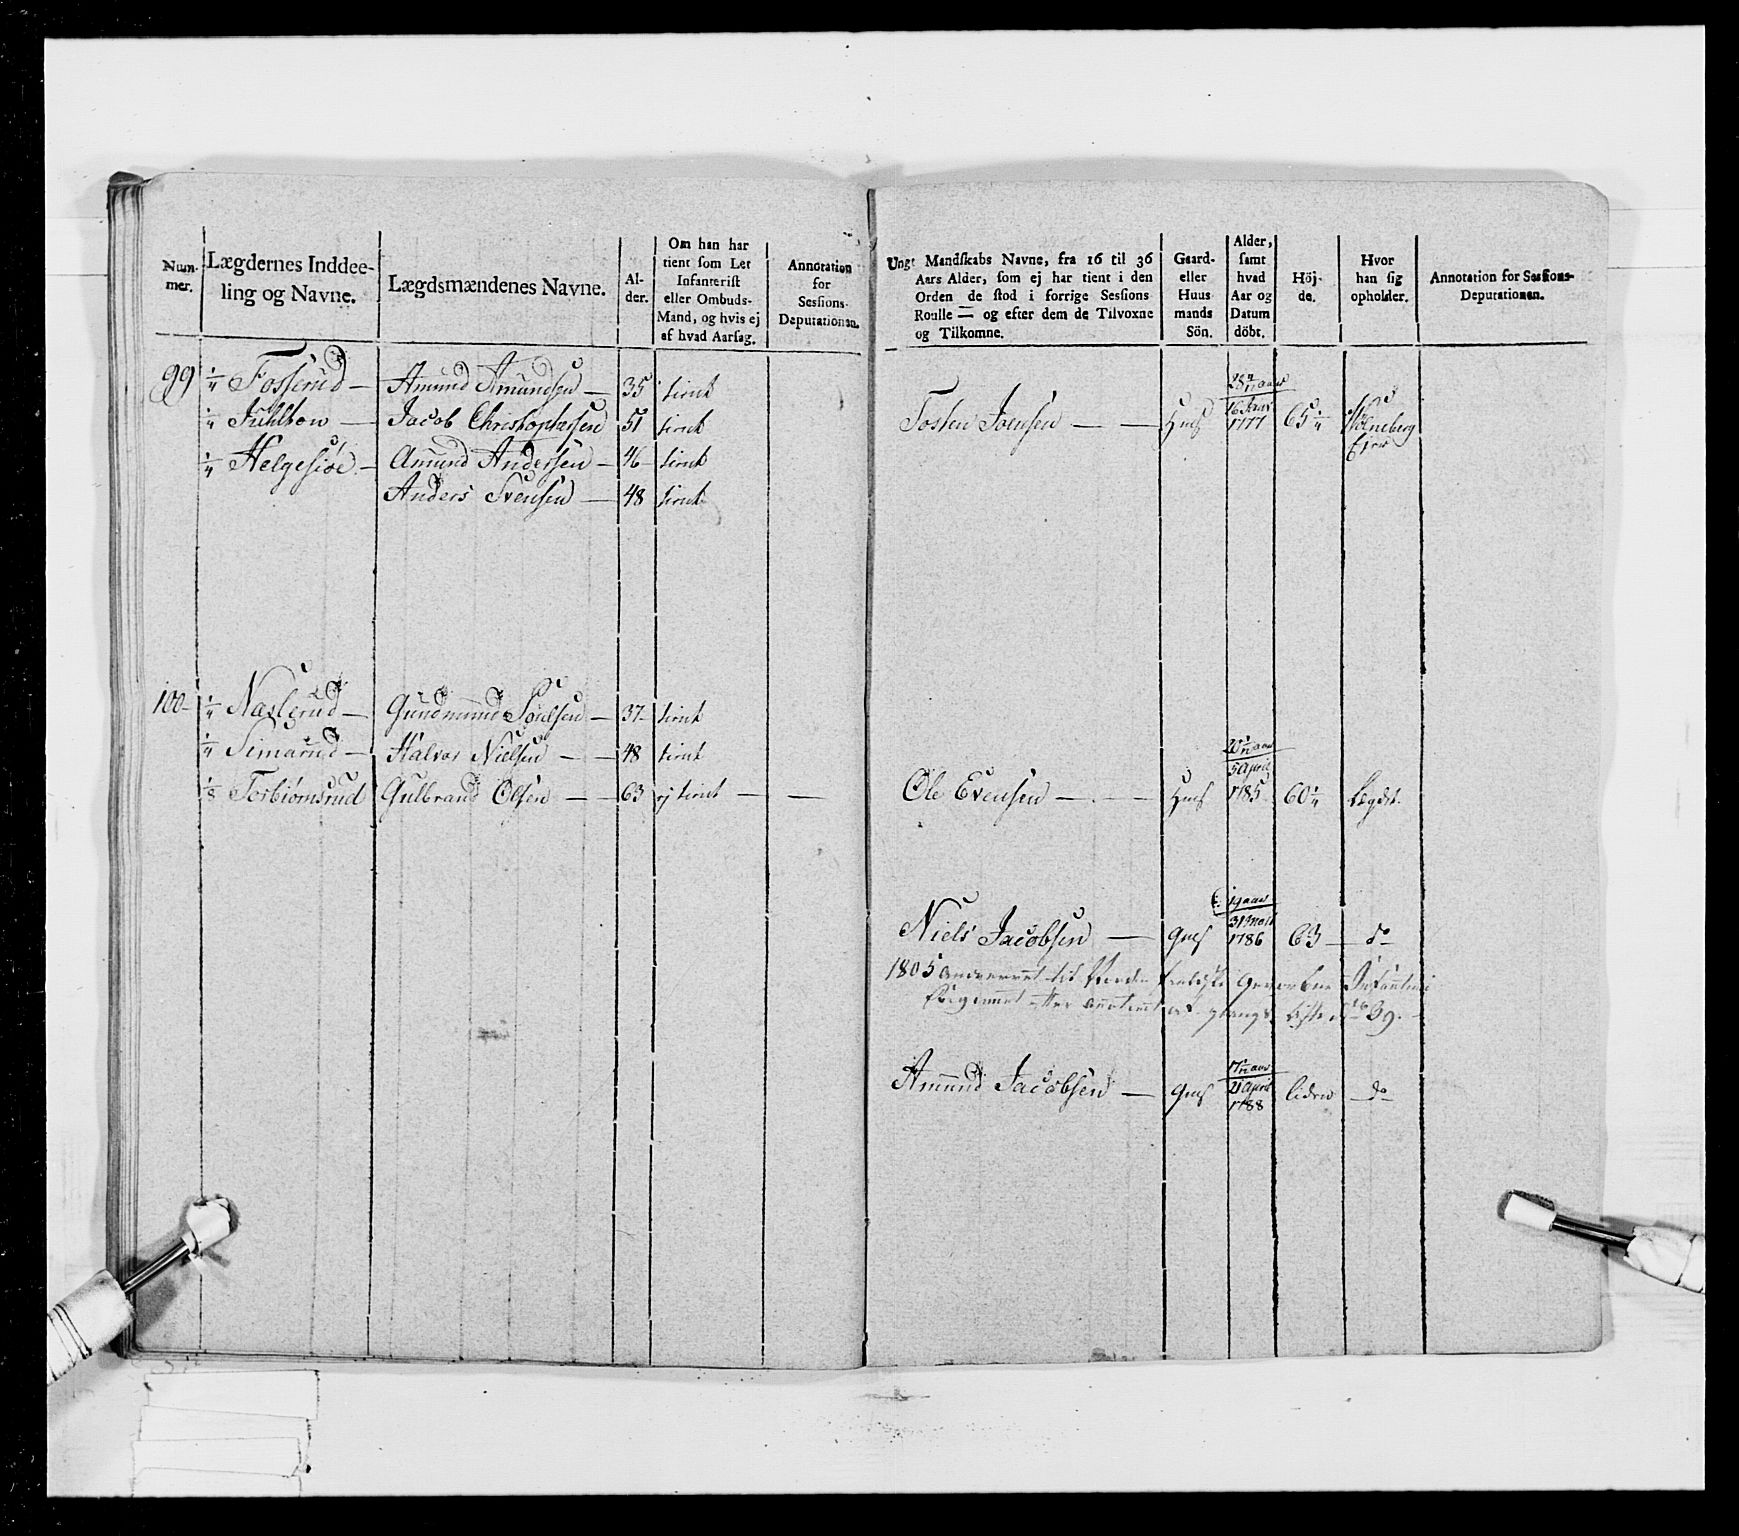 Num-
mer.
Lægdernes Inddee-
ling og Navne.
Lægdsmændenes Navne.
Al-
der.
Om han har
tient som Let
Infanterist
eller Ombuds-
Mand, og hvis ej
af hvad Aarsag.
Annotation
for
Sessions-
Deputationen.
99 1/4 Fosserud — Amund Amundsen — 35 tient
1/4 Juhlton — Jacob Christophersen 51 tient
1/4 Helgesiøe — Amund Andersen — 46 tient
Anders Svensen — 48 tient
100 1/4 Naslerud — Gundmund — 37 tient
1/4 Simarud — Halvor Nielsen — 48 tient
1/8 Torbiørnsrud Gulbrand Olsen — 63 ej tient —
Ungt Mandskabs Navne, fra 16 til 36
Aars Alder, som ej har tient i den
Orden de stod i forrige Sessions
Roulle — og efter dem de Tilvoxne
og Tilkomne.
Gaard-
eller
Huus
mands
Sön.
Alder,
samt
hvad
Aar og
Datum
döbt.
Höj-
de.
Hvor
han sig
opholder.
Annotation for Sessions-
Deputationen.
Tosten Joensen — 1777 65 1/4
5 April
Ole Evensen — 1785 60 1/4 Lægdet
Niels Jacobsen — 1786 63 do
1805 til Infanterie
Regiment 39.
21 April
Amund Jacobsen — 1788 liden do